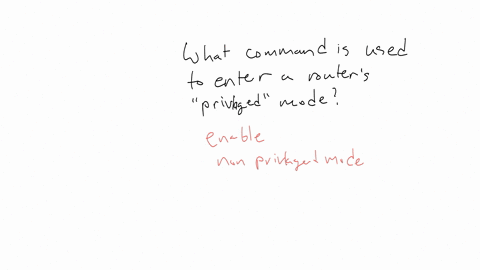 What command is used
to enter a router's
"privliged" mode?
enable
non privliged mode